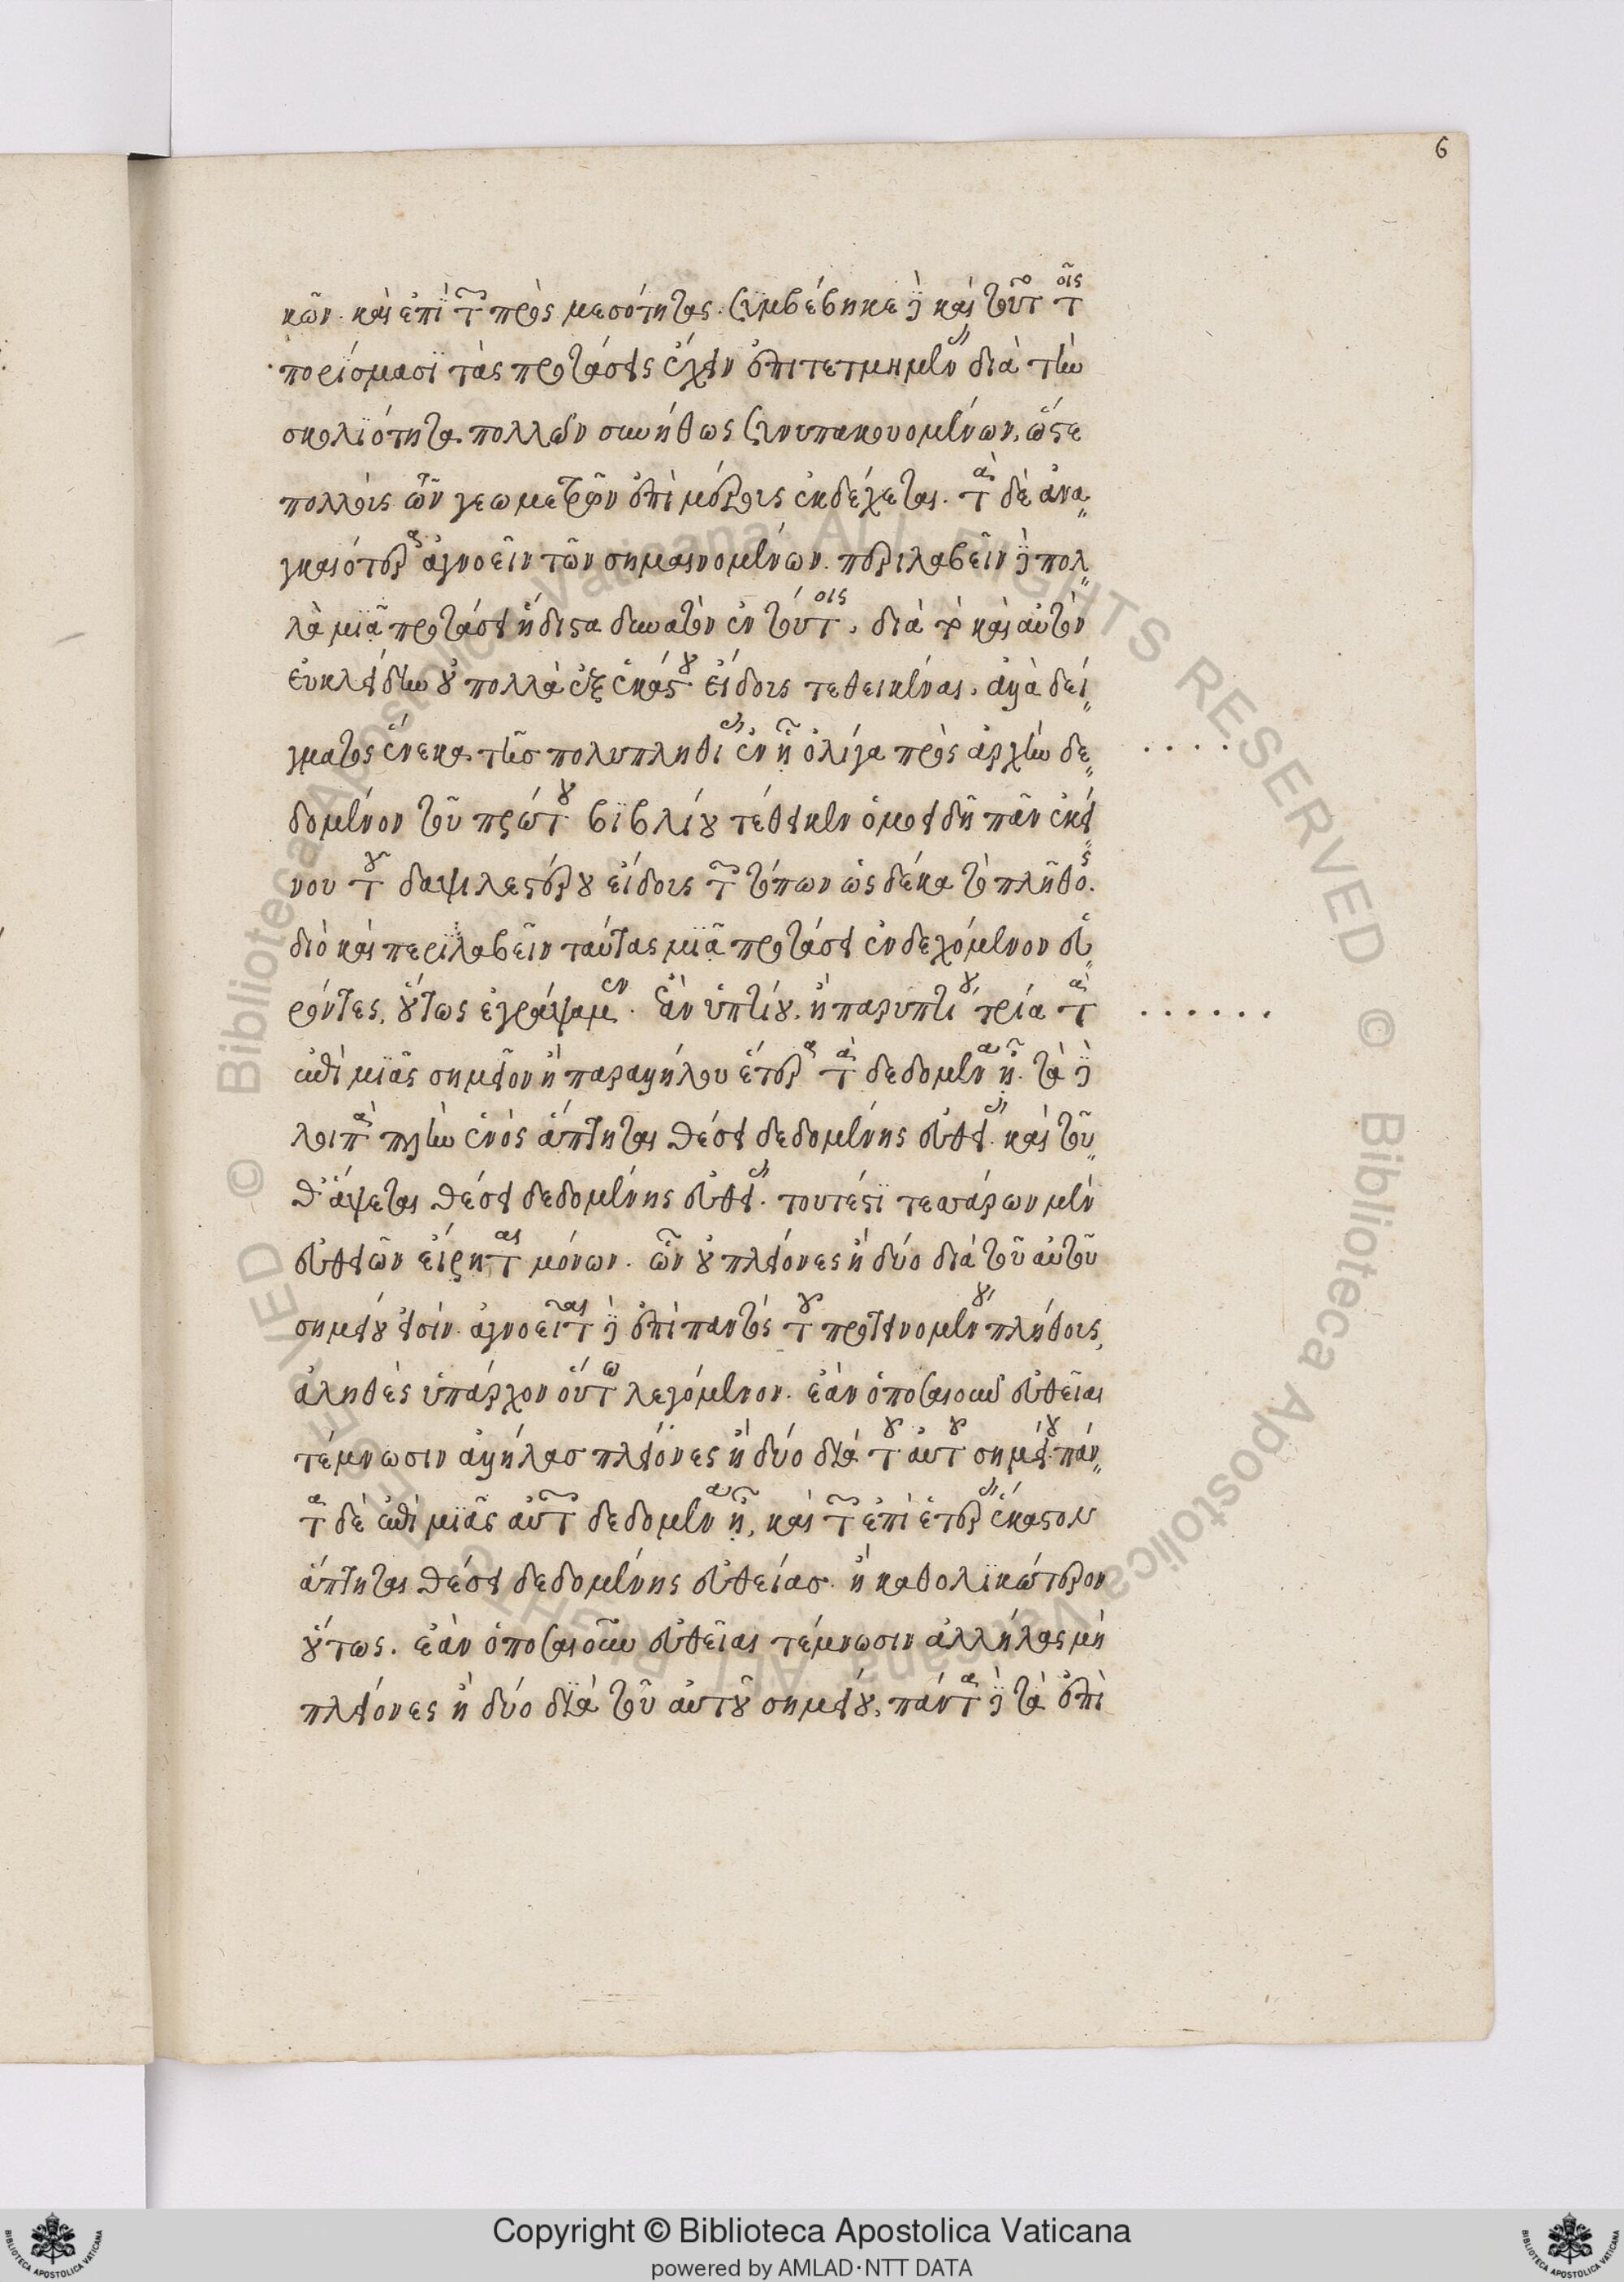 6
κῶν. καὶ ἐπὶ τῶν πρὸς μεσότητας. συμβέβηκε δὲ καὶ τούτοις τοῖς
πορίσμασι τὰς προτάσεις ἔχειν ἐπιτετμημένας διὰ τὴν
σκολιότητα πολλῶν συνήθως συνυπακουομένων, ὥστε
πολλοὺς τῶν γεωμετρῶν ἐπὶ μέρους ἐκδέχεται. τὰ δὲ ἀνα
γκαιότερα ἀγνοεῖν τῶν σημαινομένων. περιλαβεῖν δὲ πολ
λὰ μιᾷ προτάσει ἥδιστα δυνατὸν ἐν τούτοις, διὰ τὸ καὶ αὐτὸν
εὐκλείδην οὐ πολλὰ ἐξ ἑκάστου εἴδους τεθεικέναι, ἀλλὰ δεί
γματος ἕνεκα τῆς πολυπληθείας ἐν ᾗ ὀλίγα πρὸς ἀρχὴν δε
δομένον τοῦ πρώτου βιβλίου τέθεικεν ὁμοειδῆ πᾶν ἐκεί
νου τοῦ δαψιλεστέρου εἴδους τῶν τόπων ὡς δέκα τὸ πλῆθος.
διὸ καὶ περιλαβεῖν ταύτας μιᾷ προτάσει ἐνδεχόμενον εὑ
ρόντες, οὕτως ἐγράψαμεν. Ἐὰν ὑπτίου, ἢ παρυπτίου, τρία τὰ
ἐπὶ μιᾶς σημεῖον ἢ παραλλήλου ἑτέρα τὰ δεδομένα ᾖ. τὰ δὲ
λοιπὰ πλὴν ἑνὸς ἅπτηται θέσει δεδομένης εὐθείας. καὶ τοῦ
θ' ἅψεται θέσει δεδομένης εὐθείας. τουτέστι τεσσάρων μὲν
εὐθειῶν εἴρηται μόνων. ὧν οὐ πλείονες ἢ δύο διὰ τοῦ αὐτοῦ
σημείου εἰσίν. ἀγνοεῖται δὲ ἐπὶ παντὸς τοῦ προτεινομένου πλήθους,
ἀληθὲς ὑπάρχον οὕτω λεγόμενον. ἐὰν ὁποσαιοῦν εὐθεῖαι
τέμνωσιν ἀλλήλας πλείονες ἢ δύο διὰ τοῦ αὐτοῦ σημείου πάν
τα δὲ ἐπὶ μιᾶς αὐτῶν δεδομένα ᾖ, καὶ τῶν ἐπὶ ἑτέρας ἕκαστον
ἅπτηται θέσει δεδομένης εὐθείας. ἢ καθολικώτερον
οὕτως. ἐὰν ὁποσαιοῦν εὐθεῖαι τέμνωσιν ἀλλήλας μὴ
πλείονες ἢ δύο διὰ τοῦ αὐτοῦ σημείου, πάντα δὲ τὰ ἐπὶ
Copyright © Biblioteca Apostolica Vaticana
powered by AMLAD·NTT DATA